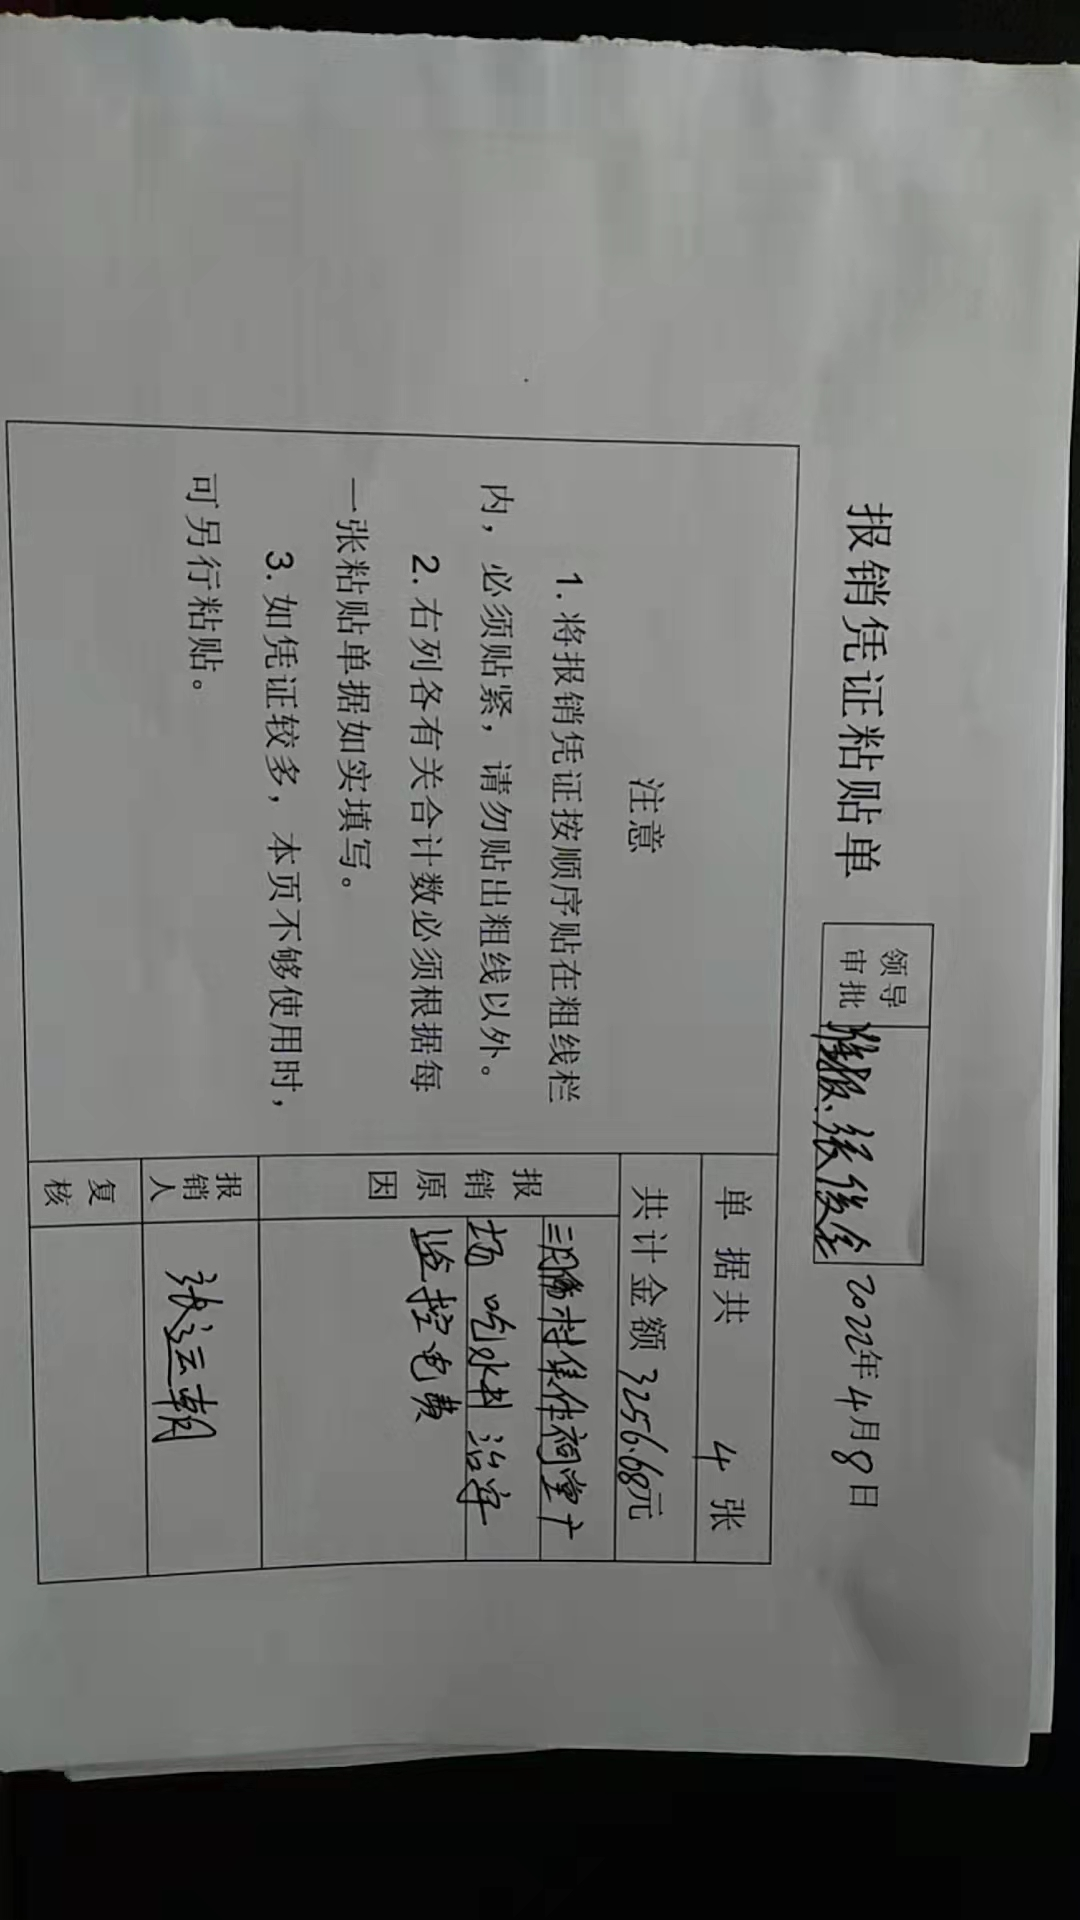 报销凭证粘贴单
领导
审批
准报.张俊全
2022年4月8日
注意
1.将报销凭证按顺序贴在粗线栏
内，必须贴紧，请勿贴出粗线以外。
2.右列各有关合计数必须根据每
一张粘贴单据如实填写。
3.如凭证较多，本页不够使用时，
可另行粘贴。
单据共 4 张
共计金额 3256.68元
报销原因
村集体祠堂广
场 吃水 治安
监控电费
报销人
张运朝
复核